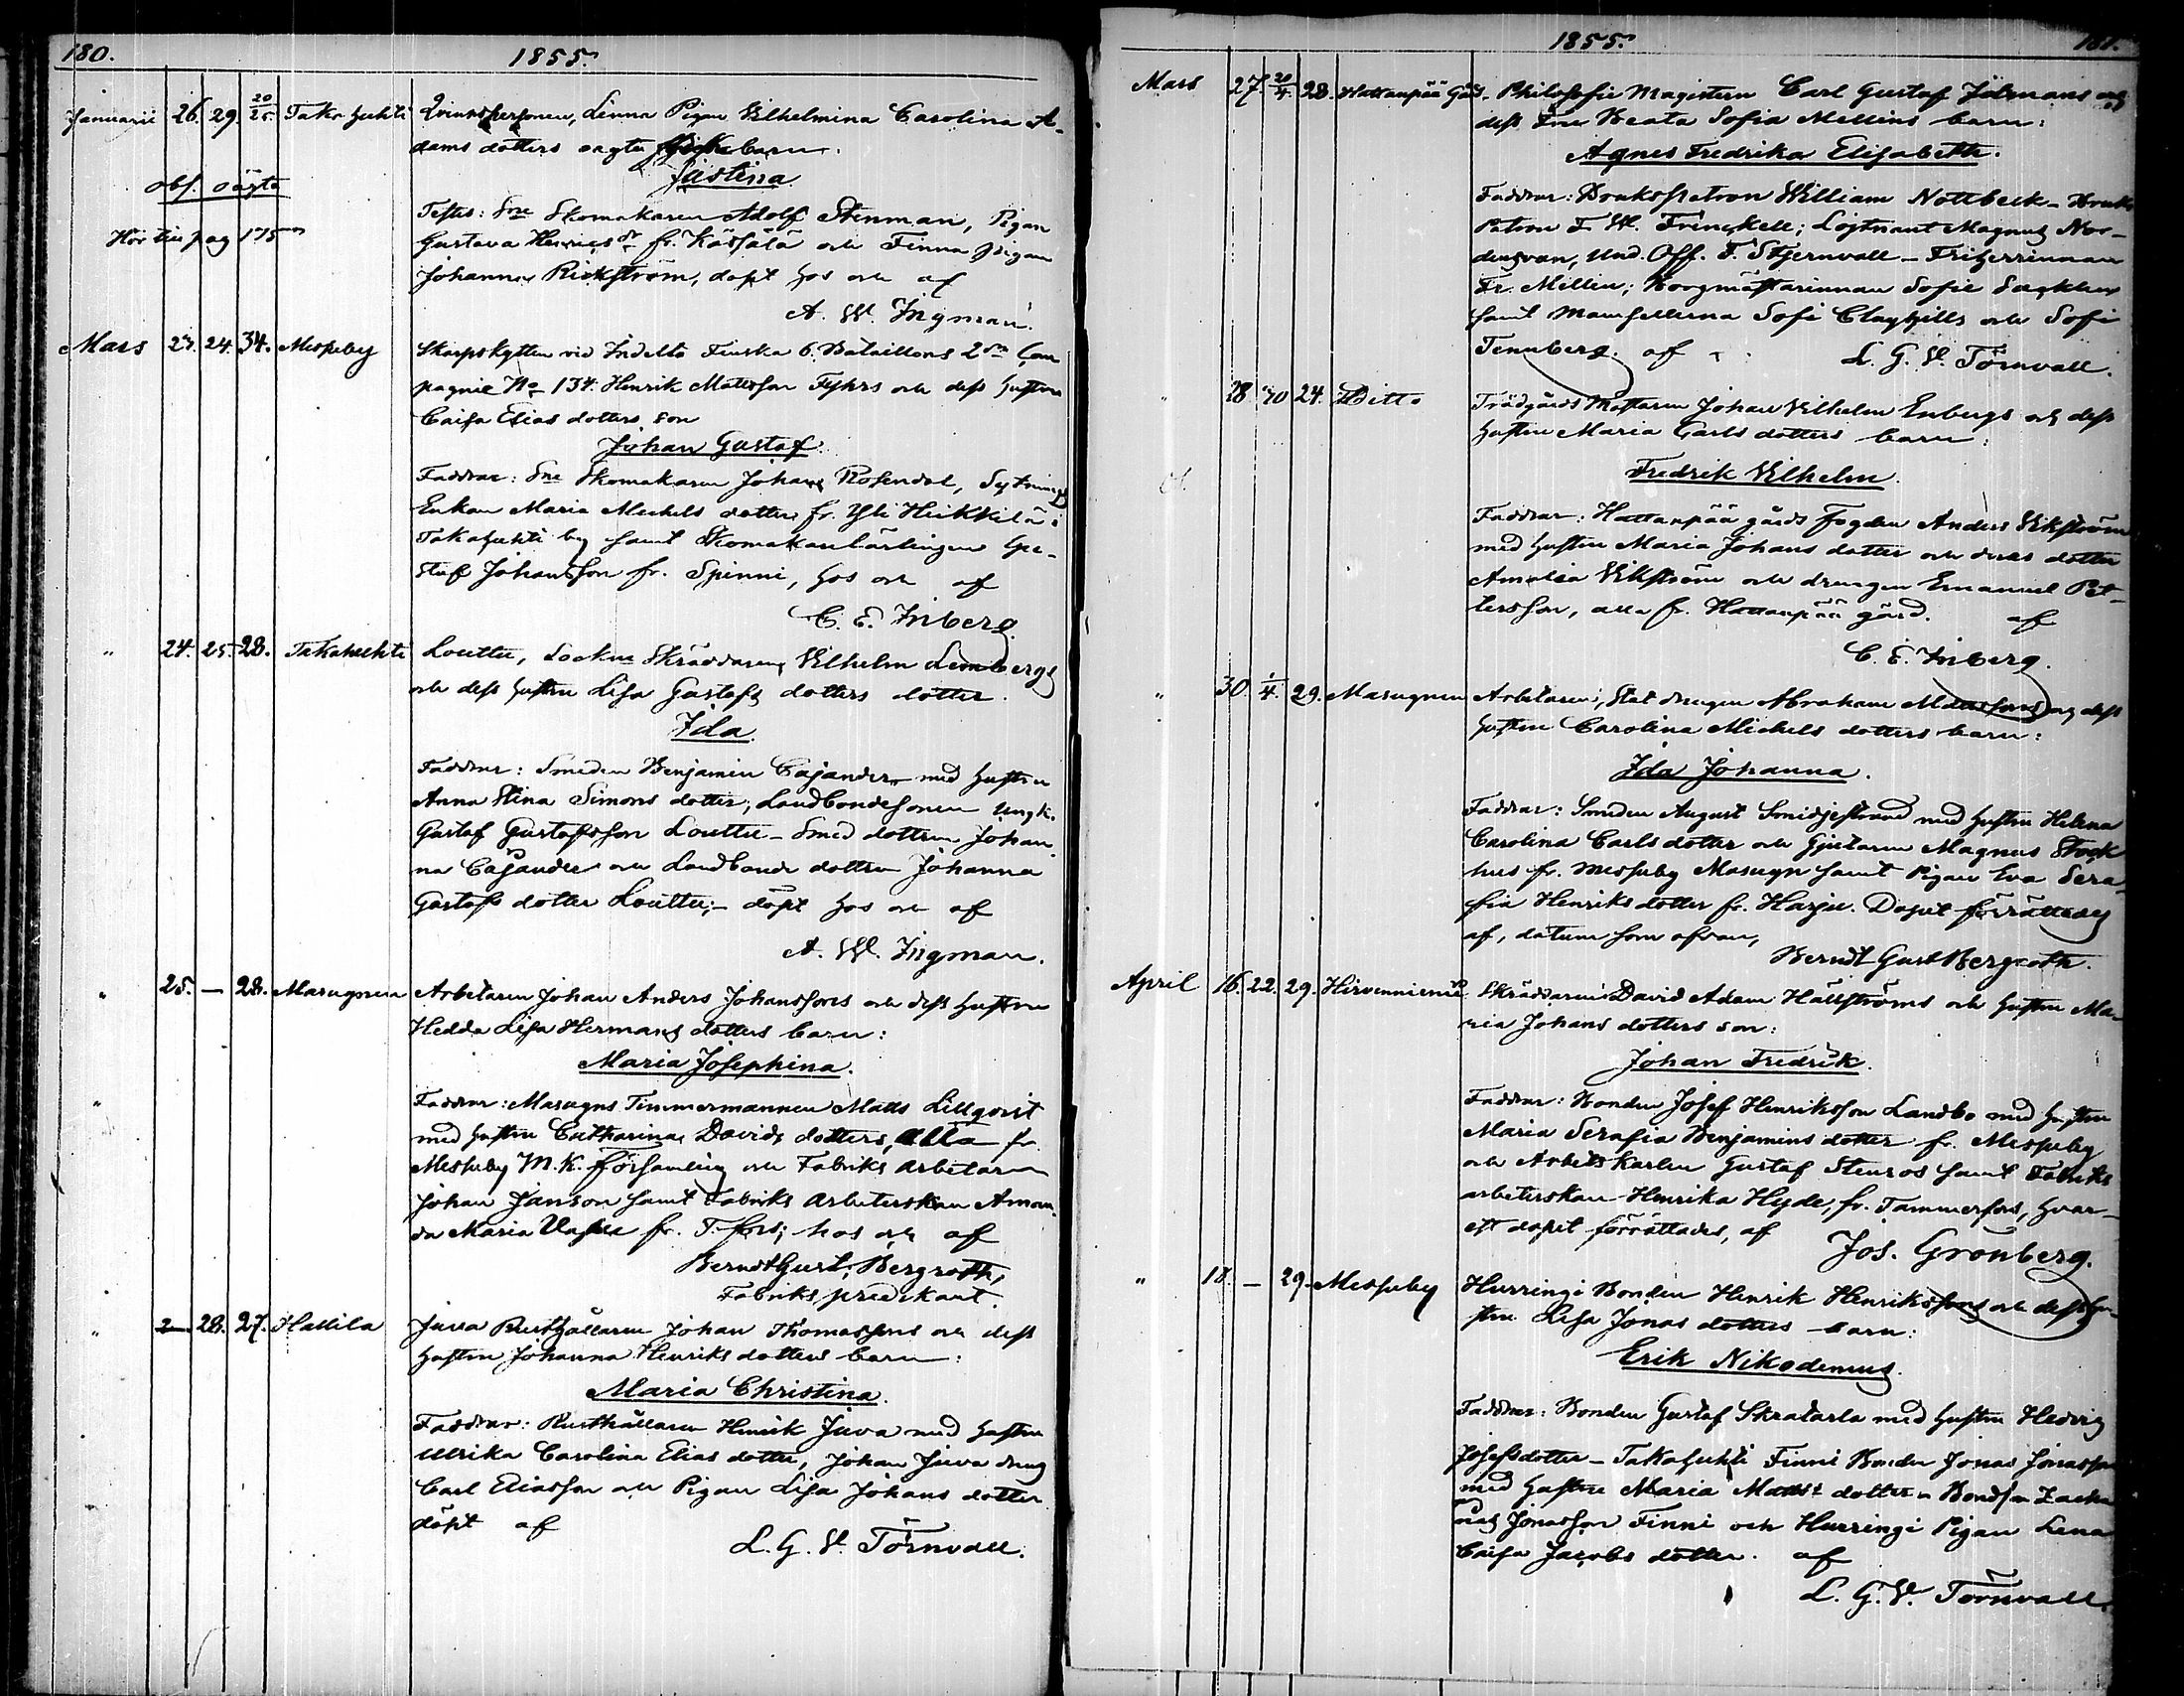 180.
1855.
Januarii 26. 29. 20/25. Takahuhti Qvinnspersonen, Linna Pigan Vilhelmina Carolina A-
dams dotters oägta barn:
Justina.
obs. oägta
Hör till pag 175
Testes: Sne Skomakaren Adolf Stenman, Pigan
Gustava Henricsdr fr. Kässälä och Finna pigan
Johanna Rickström, döpt hos och af
A. W. Ingman.
Mars 23. 24. 34. Messuby Skarpskytten vid Indelta Finska 6. Bataillons 2dra Com
pagnie No 134. Henrik Mattsson Fykrs och dess hustru
Caisa Elias dotters son
Johan Gustaf.
Faddrar: Sne Skomakaren Johan Rosendal, Sytnings
Enkan Maria Michels dotter fr. Yli Heikkilä i
Takahuhti by samt Skomakarelärlingen Gu-
staf Johansson fr. Spinni, hos och af
C. E. Inberg.
" 24. 25. 28. Takahuhti Louttu, Sockne Skräddaren Vilhelm Lembergs
och dess hustru Lisa Gustafs dotters dotter.
Ida.
Faddrar: Smeden Benjamin Cajander med hustru
Anna Stina Simons dotter, Landbondesonen ungk.
Gustaf Gustafsson Louttu - Smed dottren Johan
na Cajander och Landbonde dottren Johanna
Gustafs dotter Louttu; - döpt hos och af
A. W. Ingman.
" 25. — 28. Masugnen Arbetaren Johan Anders Johanssons och dess hustru
Hedda Lisa Hermans dotters barn:
Maria Josephina.
Faddrar: Masugns Timmermannen Matts Lillqvist
med hustru Catharina Davids dotters, alla fr.
Messuby M.K. församling och Fabriks arbetaren
Johan Janson samt Fabriks arbeterskan Aman
da Maria fr. T.fors; hos och af
Berndt Gust. Bergroth,
Fabriks predikant.
" 28. 27. Hallila Juva Rusthållaren Johan Thomassons och dess
hustru Johanna Henriks dotters barn:
Maria Christina.
Faddrar: Rusthållaren Henrik Juva med hustru
Ulrika Carolina Elias dotter, Johan Juva dräng
Carl Eliasson och Pigan Lisa Johans dotter
döpt af
L. G. V. Törnvall.
1855.
181.
Mars 27. 20/4 28. Hattanpää Gård. Philosofie Magistern Carl Gustaf Jölmans och
dess Fru Beata Sofia Mellins barn:
Agnes Fredrika Elisabeth.
Faddrar: Brukspatron William Nottbeck - Bruks
Patron F. W. Frenckell; Löjtnant Magnus Nor-
densvan, Und. Off. F. Stjernvall - Friherrinnan
Fr. Mellin; Borgmästarinnan Sofie
samt Mamsellerna Sofi Clayhills och Sofi
Tennberg. af L. G. V. Törnvall.
" 28 24. Ditto Trädgårds Mästaren Johan Vilhelm Enbergs och dess
hustru Maria Carls dotters barn:
Fredrik Vilhelm.
Faddrar: Hattanpää gårds fogden Anders Vikström
med hustru Maria Johans dotter och deras dotter
Amalia Vikström och drengen Emanuel Pet-
tersson, alla fr. Hattanpää gård. af
C. E. Inberg.
" 30. 1/4. 29. Masugnen Arbetaren, Stat drengen Abraham Mattssons och dess
hustru Carolina Michels dotters barn:
Ida Johanna.
Faddrar: Smeden August Smidjestrand med hustru Helena
Carolina Carls dotter och Gjutaren Magnus Stock
hus fr. Messuby Masugn samt Pigan Eva Sera-
fia Henriks dotter fr. Harju. Dopet förrättades
af, datum som ofvan,
Berndt Gust Bergroth.
April 16. 22. 29. Hirvenniemi Skräddaren David Adam Hällströms och hustru Ma-
ria Johans dotters son:
Johan Fredrik.
Faddrar: Bonden Josef Henriksson Landbo med hustru
Maria Serafia Benjamins dotter fr. Messuby
och Arbets karlen Gustaf Stenros samt Fabriks
arbeterskan Henrika Hyde, fr. Tammerfors, hvar-
est dopet förrättades, af Jos. Grönberg.
" 18. — 29. Messuby Hurringi Bonden Henrik Henrikssons och dess hu-
stru Lisa Jonas dotters barn:
Erik Nikodemus.
Faddrar: Bonden Gustaf Skratarla med hustru Hedvig
Josefsdotter - Takahuhti Finni Bonden Jonas Jonasson
med hustru Maria Matts dotter - Bondson Zacha
rias Jonasson Finni och Hurringi Pigan Lena
Caisa Jacobs dotter. af
L. G. V. Törnvall.